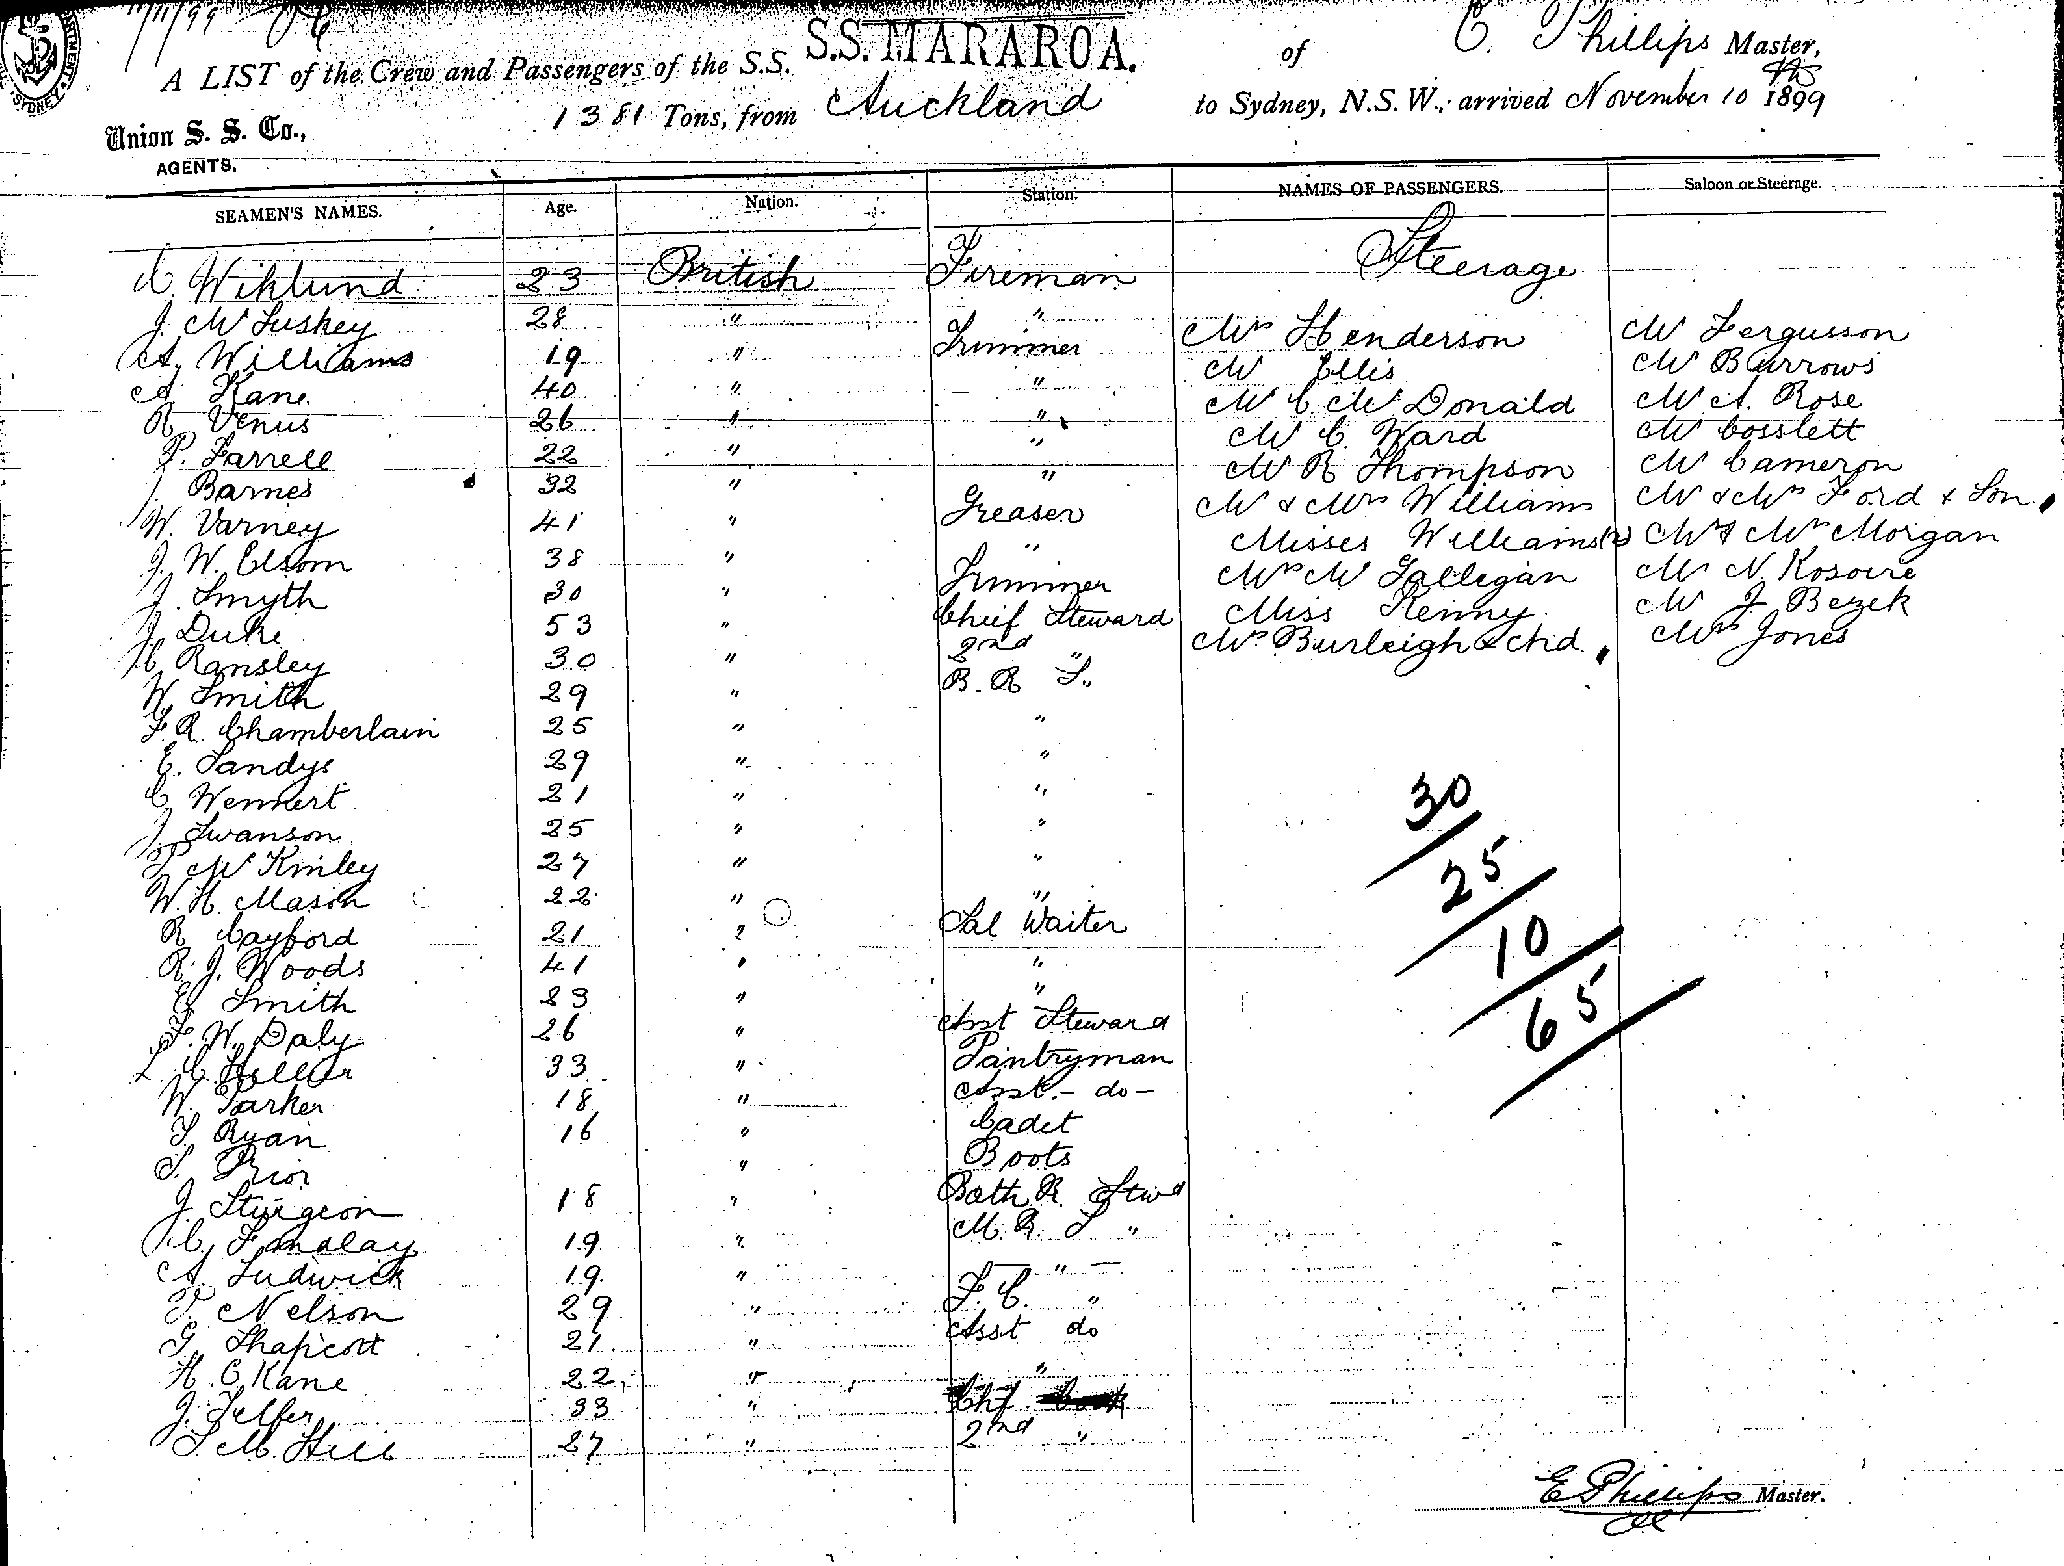 11/11/99
S.S. MARAROA.
A LIST of the Crew and Passengers of the S.S. of C. Phillips Master,
1381 Tons, from Auckland to Sydney, N.S.W., arrived November 10 1899
Union S. S. Co.,
AGENTS.
SYDNEY
SEAMEN'S NAMES. Age. Nation. Station. NAMES OF PASSENGERS. Saloon or Steerage.
Steerage
Wiklund 23 British Fireman
J. McLuskey 28 " " Mrs Henderson Mr Fergusson
A. Williams 19 " Trimmer Mr Ellis Mr Burrows
A Kane 40 " " Mr C McDonald Mr A. Rose
R Venus 26 " " Mr C. Ward Mr Cosslett
P. Farrell 22 " " Mr R Thompson Mr Cameron
J. Barnes 32 " " Mr & Mrs Williams Mr & Mrs Ford & Son
W. Varney 41 " Greaser Misses Williams (2) Mr & Mrs Morgan
J. W. Elsom 38 " " Mrs McGallegan Mr N Kosovre
J. Smyth 30 " Trimmer Miss Kenny Mr J Bezek
J Duke 53 " Chief Steward Mrs Burleigh & Chd Mrs Jones
Ransley 30 " 2nd "
W. Smith 29 " B. R S.
F. R. Chamberlain 25 " "
E. Sandys 29 " "
C Wennert 21 " "
J Swanson 25 " "
P McKinley 27 " "
W. H. Mason 22 " "
R Cayford 21 " Sal Waiter
R. J. Woods 41 " "
E Smith 23 " "
F. W. Daly 26 " Asst Steward
L. C. Hellier 33 " Pantryman
W. Parker 18 " Asst. - do -
T. Ryan 16 " Cadet
S. Prior " Boots
J. Sturgeon 18 " Bath R. Stwd
C. Findlay 19 " M. R. S "
A. Ludwick 19 " — " —
T. Nelson 29 " F. C. "
G. Shapcott 21 " Asst do
H. C Kane 22 " "
J. Telfer 33 " Chf Cook
S M. Hill 27 " 2nd "
30
25
10
65
E Phillips Master.